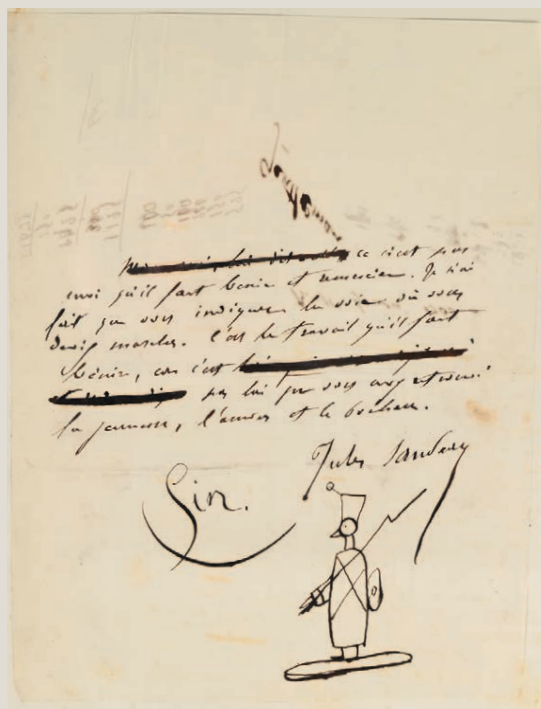 ce n'est pas
moi qu'il faut bénir et remercier. Je n'ai
fait que vous indiquer la voie où vous
deviez marcher. C'est le travail qu'il faut
bénir, car c'est
par lui que vous avez retrouvé
la jeunesse, l'amour et le bonheur.
Jules Sandeau
Fin.